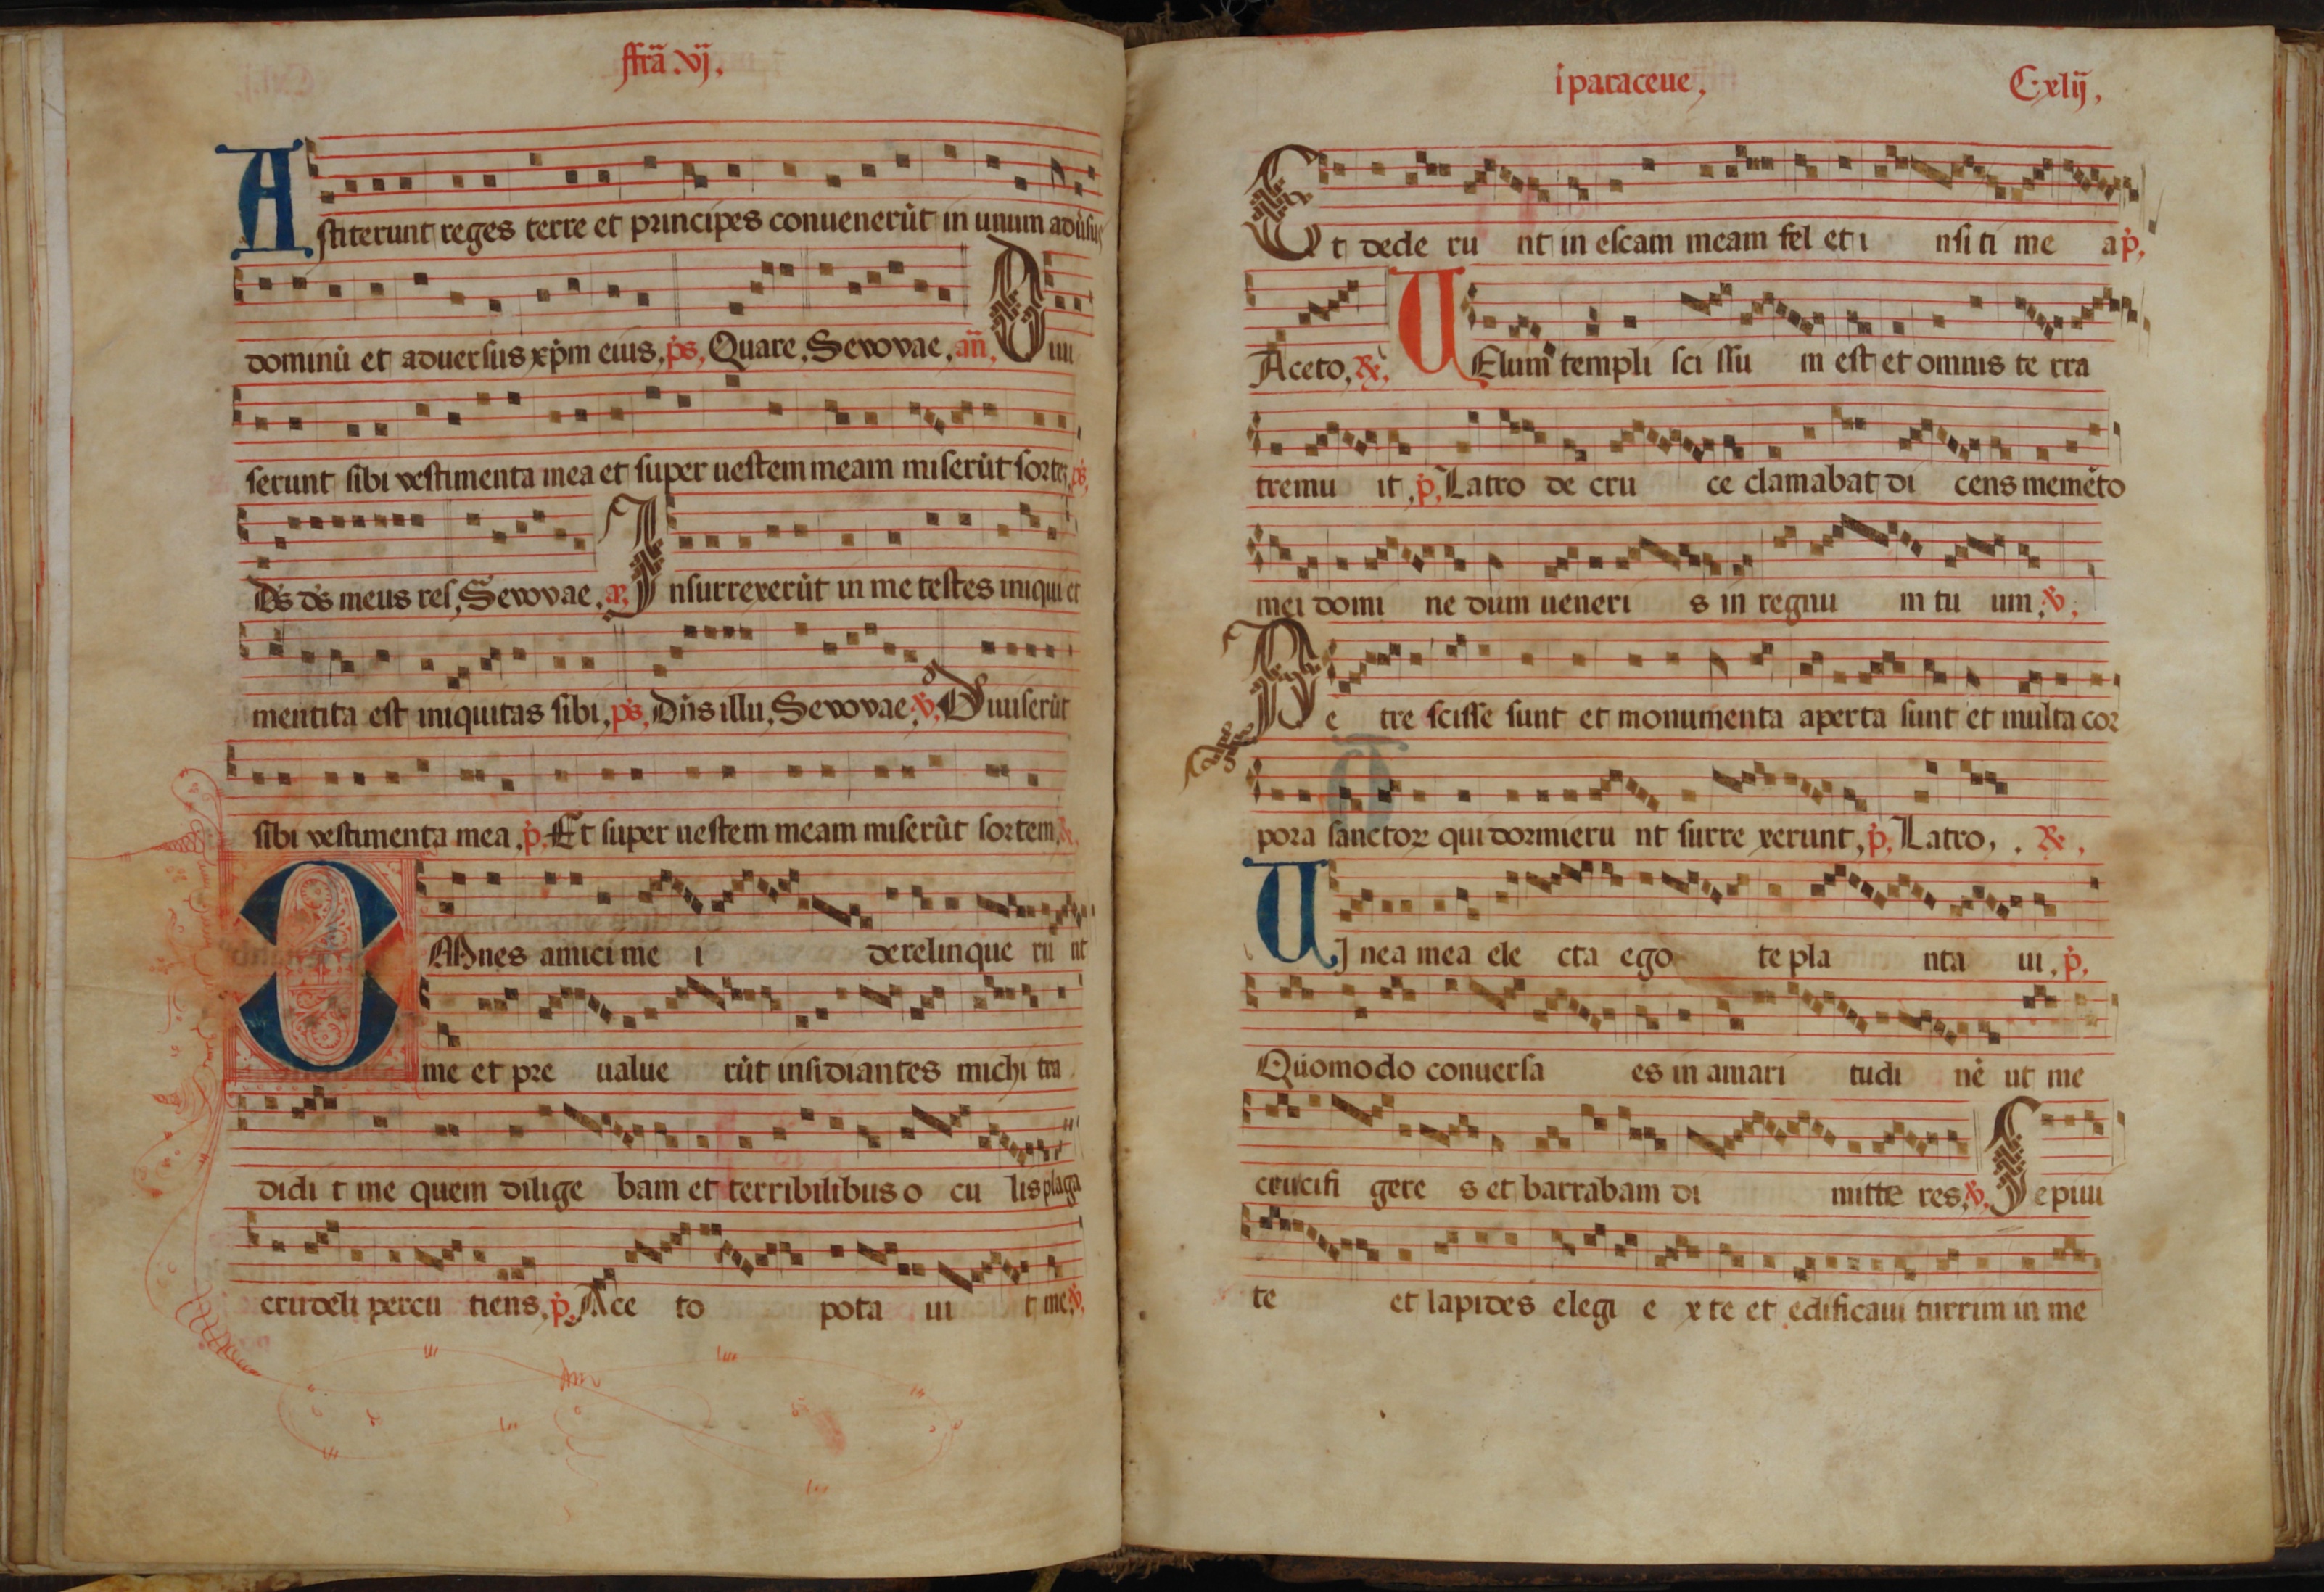 ffrã .vj,
Astiterunt reges terre et principes conuenerũt in unum adũsus
dominũ et aduersus xp̃m eius, p̃s, Quare, Seuovae, añ, Diui
serunt sibi vestimenta mea et super uestem meam miserũt sortẽ, p̃s,
Ds̃ ds̃ meus res, Seuovae, a, Insurrexerũt in me testes iniqui et
mentita est iniquitas sibi, p̃s, Dñs illu, Seuovae, v̉, Diuiserũt
sibi vestimenta mea, p̉, Et super uestem meam miserũt sortem, R,
OMnes amici me i derelinque ru nt
me et pre ualue rũt insidiantes michi tra
didi t me quem dilige bam et terribilibus o cu lis plaga
crudeli percu tiens, p̉, Ace to pota ui t me, v̉,
i paraceue, Cxlij,
Et dede ru nt in escam meam fel et i nsi ti me a p̉,
Aceto, R, VElum templi sci ssu m est et omnis te rra
tremu it, p̉, Latro de cru ce clamabat di cens memẽto
mei domi ne dum ueneri s in regnu m tu um, v̉,
Pe tre scisse sunt et monumenta aperta sunt et multa cor
pora sanctoꝝ qui dormieru nt surre xerunt, p̉, Latro, . R,
VJnea mea ele cta ego te pla nta ui, p̉,
Quomodo conuersa es in amari tudi nẽ ut me
crucifi gere s et barrabam di mitte res, v̉, Sepiui
te et lapides elegi e x te et edificaui turrim in me